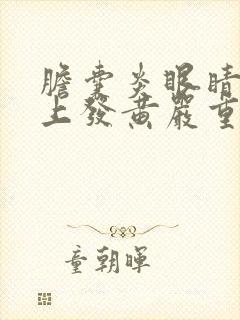 膽囊炎眼睛
上發黃嚴重
童朝暉